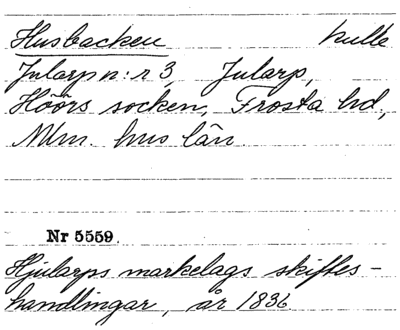 Husbacken kulle
Jularp n:r 3, Jularp,
Höörs socken, Frosta hd,
Mlm. hus län.
Nr 5559.
Hjularps markelags skiftes-
handlingar, år 1836